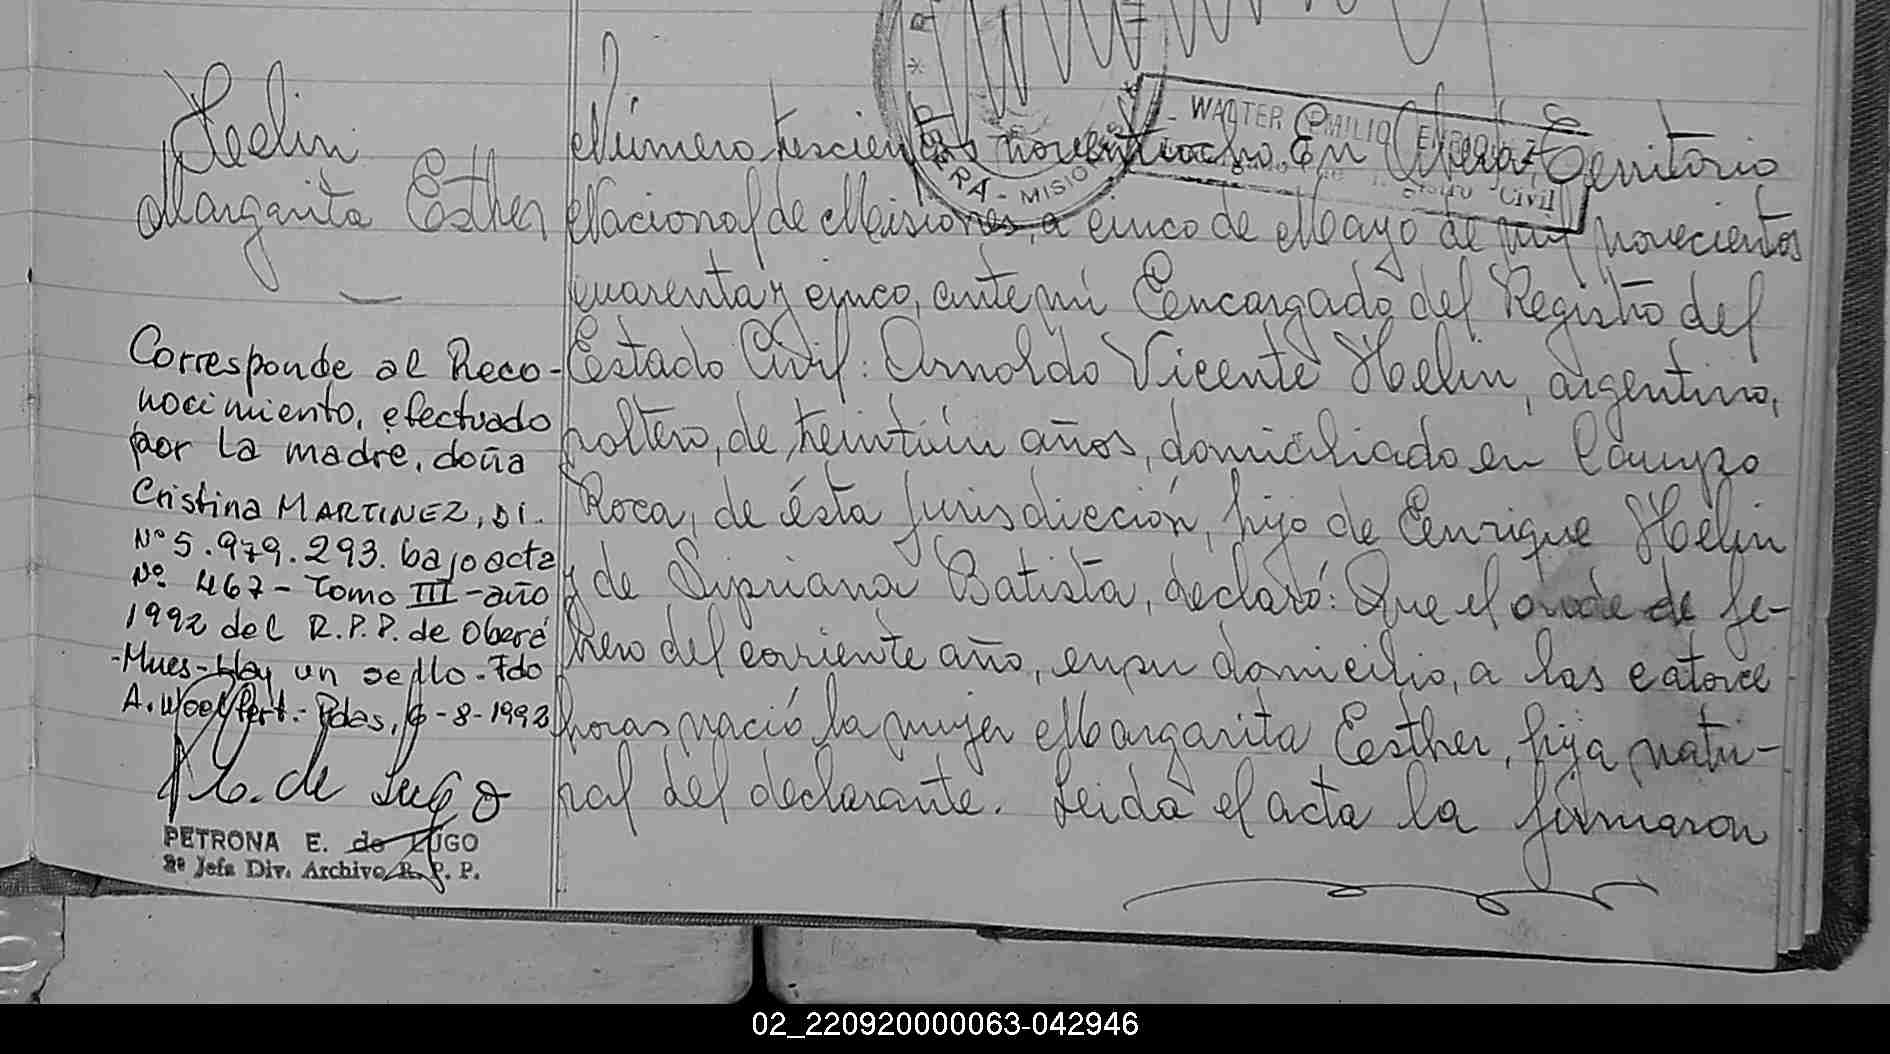 Helin
Margarita Esther
Corresponde al Reco-
nocimiento, efectuado
por la madre, doña
Cristina MARTINEZ, DI.
Nº 5.979.293. bajo acta
Nº 467 - Tomo III - año
1992 del R.P.P. de Oberá
-Mnes- Hay un sello - Fdo
A. Woelfert.- Pdas, 6-8-1992
de Lugo
PETRONA E. de LUGO
2ª Jefa Div. Archivo R. P. P.
WALTER EMILIO
Civil
OBERA - MISIONES
Número trescientos noventiocho. En Oberá, Territorio
Nacional de Misiones, a cinco de Mayo de mil novecientos
cuarenta y cinco, ante mí Encargado del Registro del
Estado Civil: Arnoldo Vicente Helin, argentino,
soltero, de treintiún años, domiciliado en Campo
Roca, de ésta jurisdicción, hijo de Enrique Helin
y de Sipriana Batista, declaró: Que el once de fe-
brero del corriente año, en su domicilio, a las catorce
horas nació la mujer Margarita Esther, hija natu-
ral del declarante. Leida el acta la firmaron
02_220920000063-042946